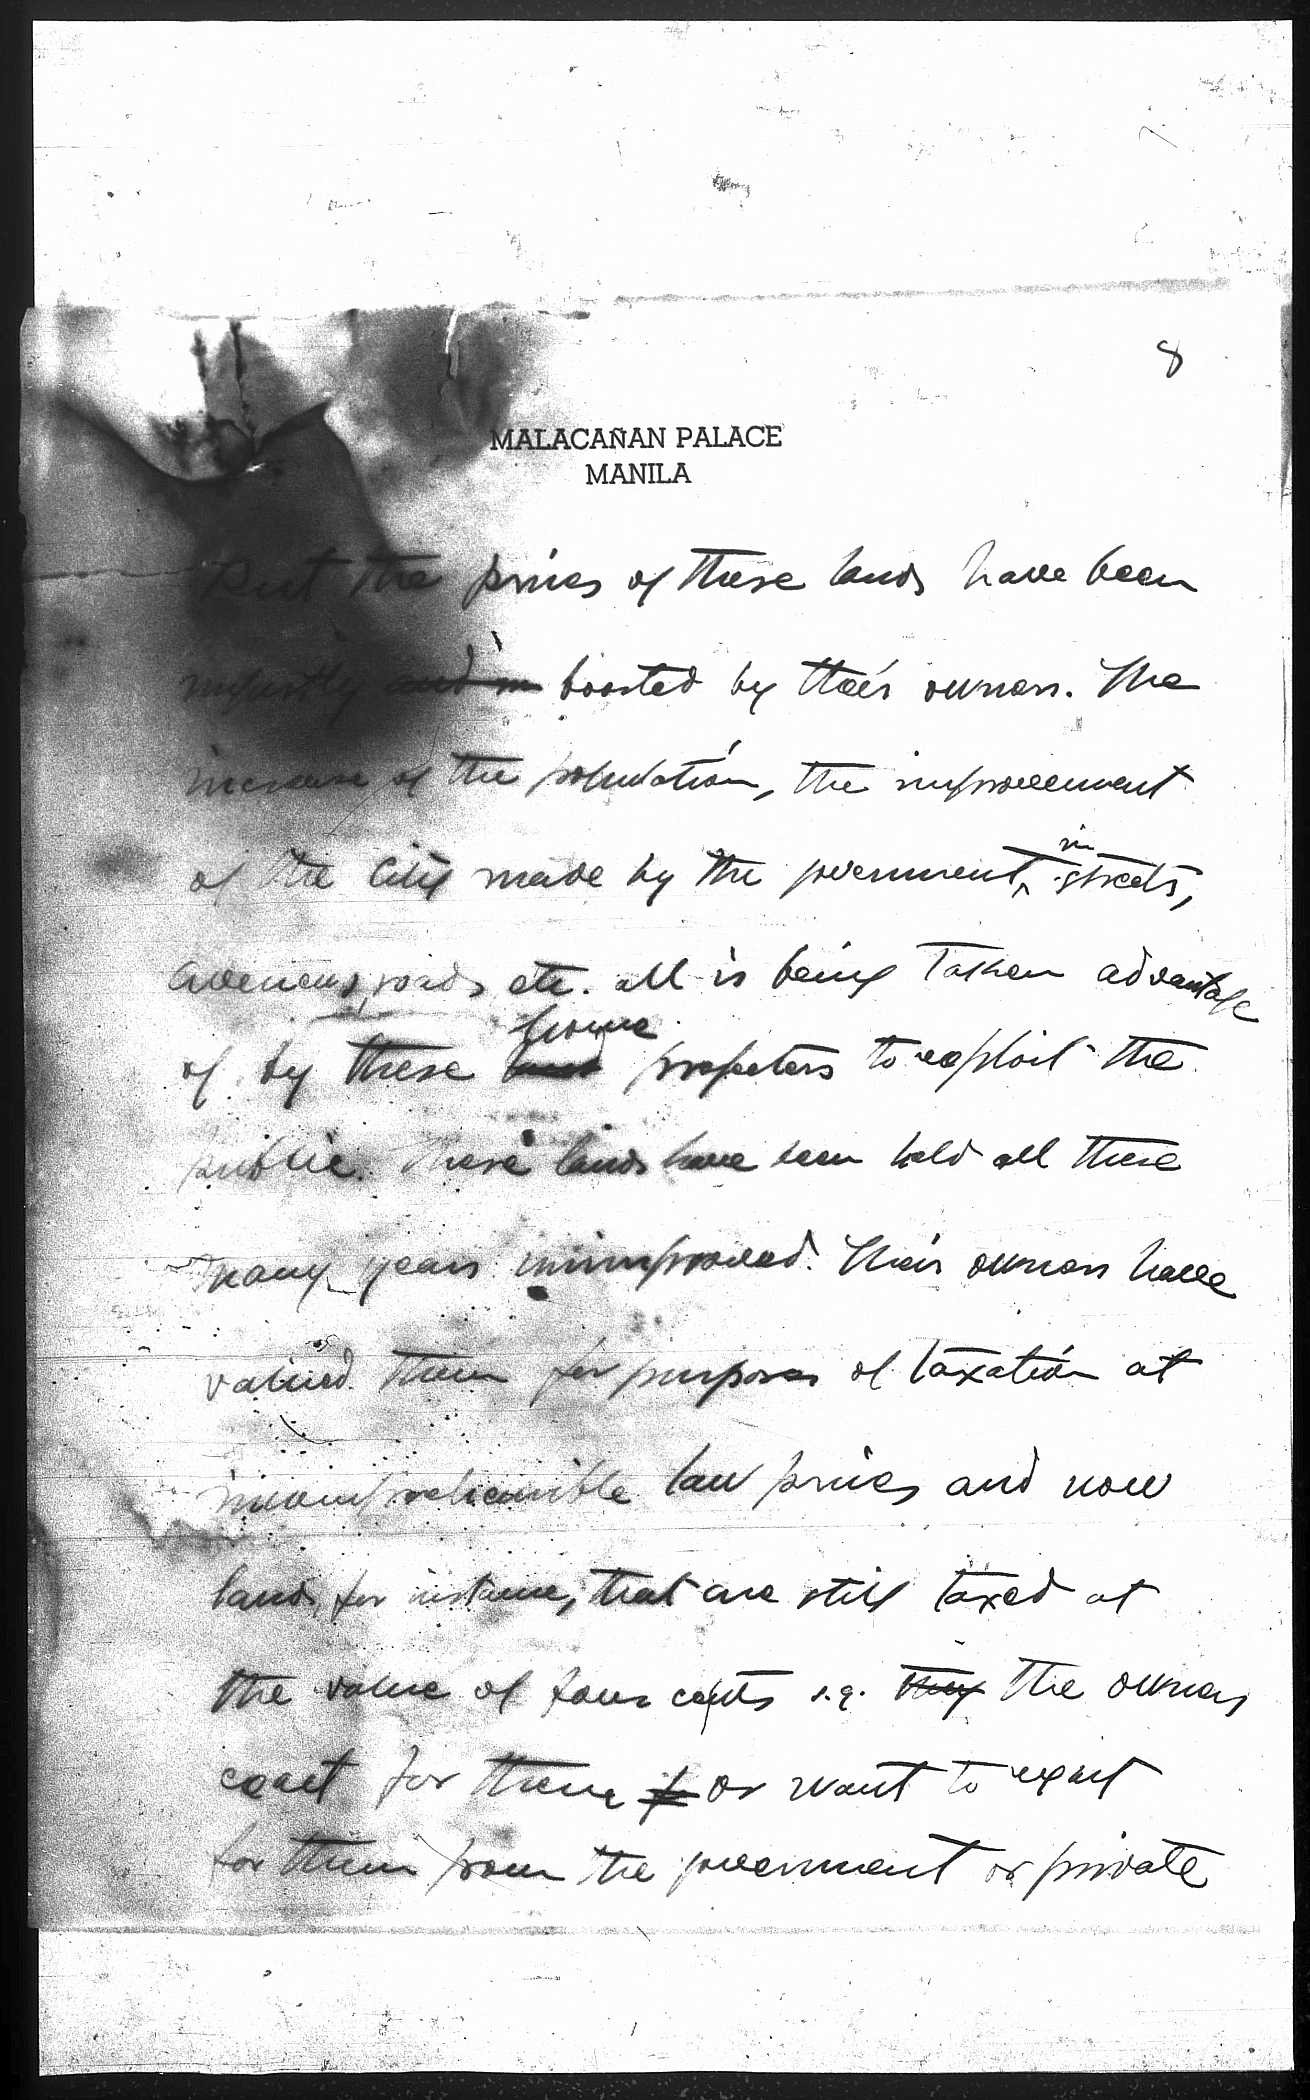 8
MALACAÑAN PALACE
MANILA
But the prices of these lands have been
unjustly boosted by their owners. The
increase of the population, the improvement
of the City made by the government, in streets,
avenues, roads etc. all is being taken advantage
of by these some profiteers to exploit the
public. These lands have been held all these
many years unimproved. Their owners have
valued them for purposes of taxation at
incomprehensible low prices and now
lands, for instance, that are still taxed at
the value of four cents s.q. they the owners
exact for them or want to exact
for them from the government or private